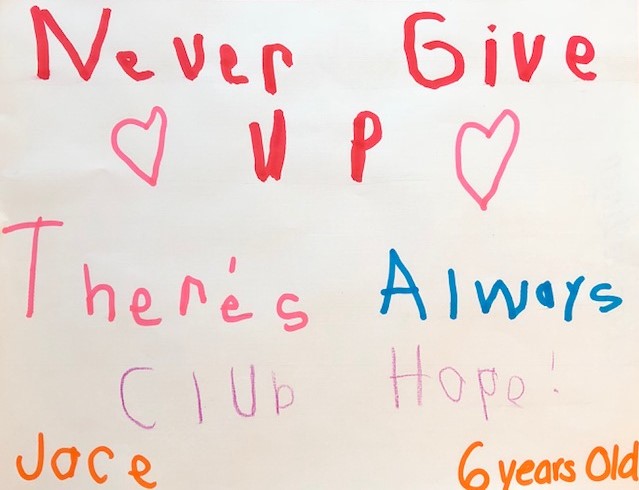 Never Give
UP
There's Always
Club Hope!
Jace 6 years Old